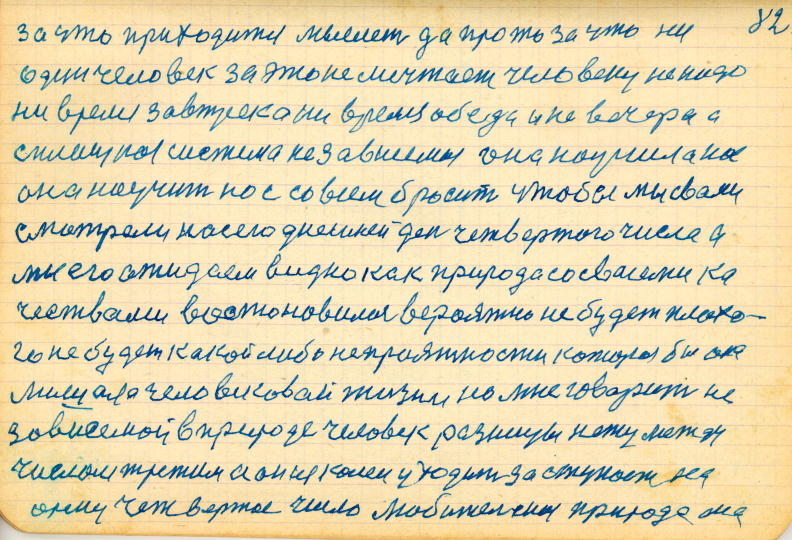 82
за что приходится мыслет да про то за что ни
один человек за это не мечтает человеку не надо
ни время завтрека ни время обеда и не вечера а
система независемая она научила нас
она научит нас совсем бросит чтобы мы с вами
смотрели на сегоднешней ден четвертого числа а
мы его ожидаем видно как природа со сваеми ка
чествами востоновилося вероятно не будет плохо-
го не будет какой либо неприятности которая бы она
мишала человековай жизни но мне говарит не
зависемой в природе человек разницы нету между
числом третим а он уходит заступает на
четвертое число любителская природа она